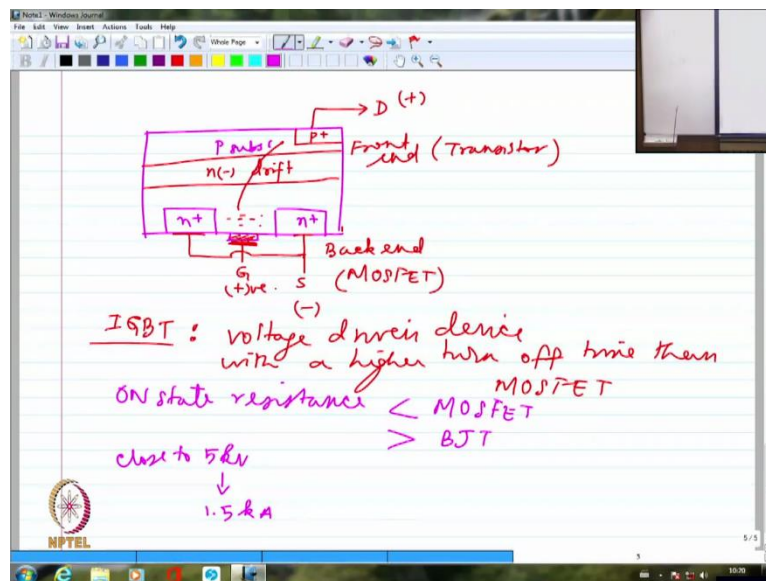 Note1 - Windows Journal
File Edit View Insert Actions Tools Help
Whole Page
B I
D (+)
P subs
P+
Front
end (Transistor)
n(-) drift
n+
n+
Back end
G
S
(MOSFET)
(+)ve.
(-)
IGBT : voltage driven device
with a higher turn off time than
MOSFET
ON state resistance < MOSFET
> BJT
close to 5kV
↓
1.5 kA
NPTEL
5/5
3
10:20